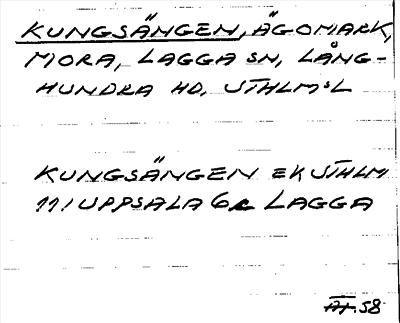 KUNGSÄNGEN, ÄGOMARK,
MORA, LAGGA SN, LÅNG-
HUNDRA HD, UTHLM:L
KUNGSÄNGEN EK STHLM
111 UPPSALA 6c LAGGA
ÅT. 58